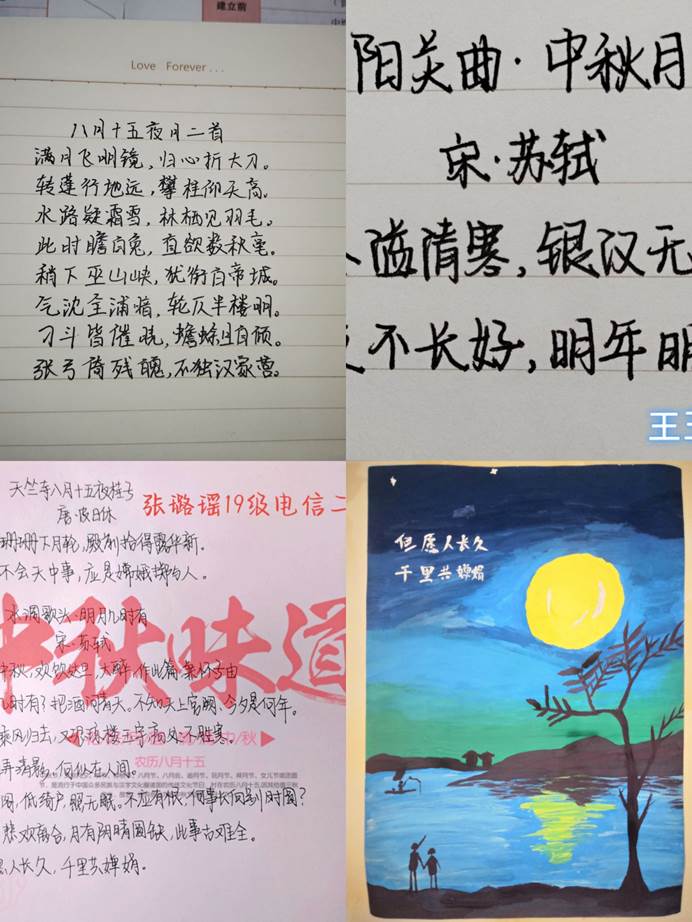 建立前
Love Forever...
八月十五夜月二首
满月飞明镜，归心折大刀。
转蓬行地远，攀桂仰天高。
水路疑霜雪，林栖见羽毛。
此时瞻白兔，直欲数秋毫。
稍下巫山峡，犹衔白帝城。
气沈全浦暗，轮仄半楼明。
刁斗皆催晓，蟾蜍且自倾。
张弓荷残魄，不独汉家营。
阳关曲·中秋月
宋·苏轼
溢清寒，银汉无
不长好，明年明
王
天竺寺八月十五夜桂子
唐·皮日休
张璐谣19级电信二
珊珊下月轮，殿前拾得露华新。
不会天中事，应是嫦娥掷与人。
水调歌头·明月几时有
宋·苏轼
中秋，欢饮达旦，大醉，作此篇，兼怀子由
时有？把酒问青天。不知天上宫阙，今夕是何年。
乘风归去，又恐琼楼玉宇，高处不胜寒。
弄清影，何似在人间。
阁，低绮户，照无眠。不应有恨，何事长向别时圆？
悲欢离合，月有阴晴圆缺，此事古难全。
人长久，千里共婵娟。
中秋味道
农历八月十五
但愿人长久
千里共婵娟